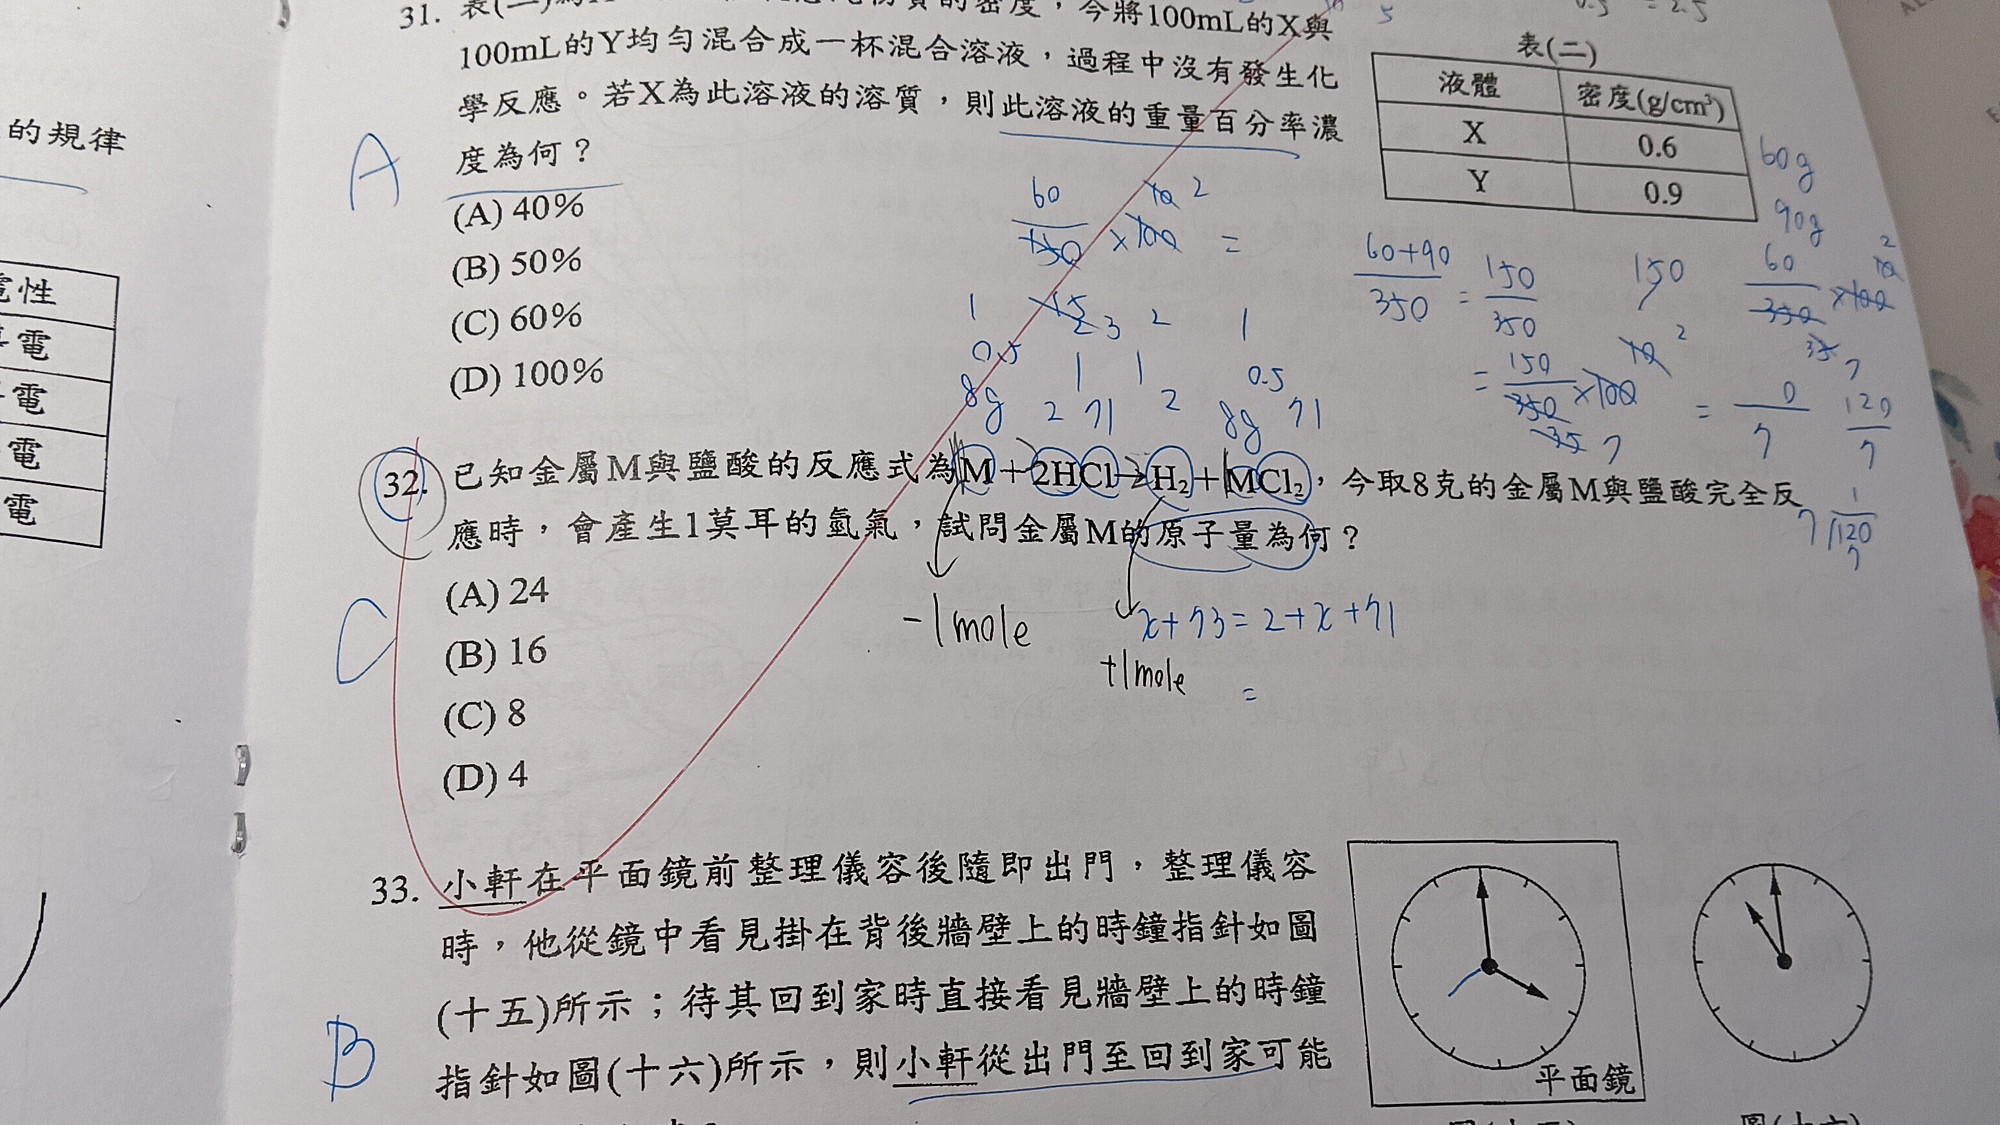 31. 表(二)為 的密度，今將100mL的X與
100mL的Y均勻混合成一杯混合溶液，過程中沒有發生化
學反應。若X為此溶液的溶質，則此溶液的重量百分率濃
度為何？
(A) 40%
(B) 50%
(C) 60%
(D) 100%
A
表(二)
液體 密度(g/cm³)
X 0.6
Y 0.9
60g
90g
0.5 = 2.5
5
60
150 ×100 =
10 2
15
3
60+90
350 = 150
350
150
60
350 ×100
10 2
35 7
= 150
350 ×100
10 2
35 7
= 0
7
120
7
1
7 120
7
1 2 2 1
0.5 1 1 0.5
8g 2 71 2 8g 71
32. 已知金屬M與鹽酸的反應式為M+2HCl→H₂+MCl₂，今取8克的金屬M與鹽酸完全反
應時，會產生1莫耳的氫氣，試問金屬M的原子量為何？
(A) 24
(B) 16
(C) 8
(D) 4
C
-1mole
x+73=2+x+71
+1mole
=
33. 小軒在平面鏡前整理儀容後隨即出門，整理儀容
時，他從鏡中看見掛在背後牆壁上的時鐘指針如圖
(十五)所示；待其回到家時直接看見牆壁上的時鐘
指針如圖(十六)所示，則小軒從出門至回到家可能
B
平面鏡
圖(十五)
圖(十六)
的規律
電性
導電
電
電
電